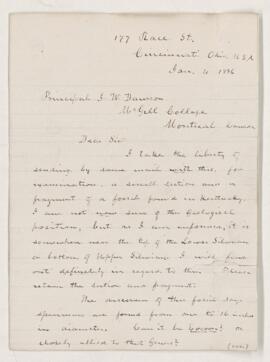 177 Race St.
Cincinnati Ohio U.S.A
Jan. 4 1886
Principal J. W. Dawson
McGill College
Montreal Canada
Dear Sir
I take the liberty of
sending by same mail with this, for
examination, a small section and a
fragment of a fossil found in Kentucky.
I am not now sure of the Geological
position, but as I am informed, it is
somewhere near the top of the Lower Silurian
or bottom of Upper Silurian. I will find
out definitely in regard to this. Please
retain the section and fragment.
The of this fossil say
specimens are found from one to 12 inches
in diameter. Can it be Eozoon? or
closely allied to that Genus?
(over)